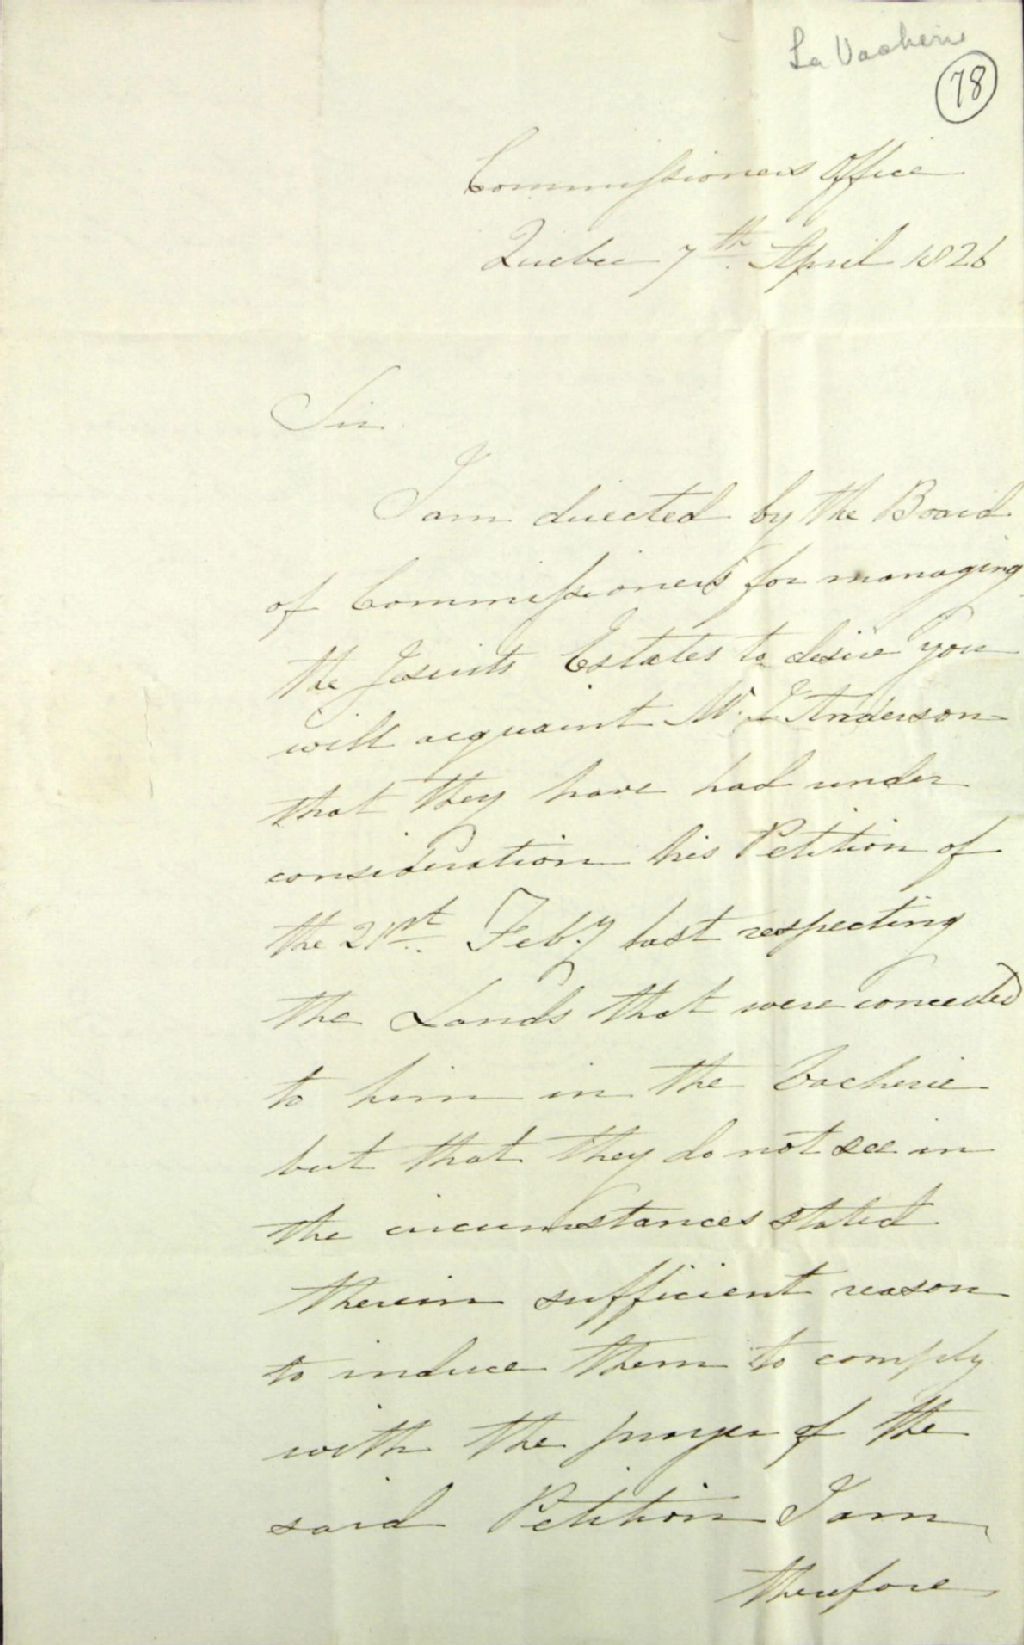 La Vacherie
78
Commissioners Office
Quebec 7th April 1826
Sir
I am directed by the Board
of Commissioners for managing
the Jesuits Estates to desire you
will acquaint Mr. Anderson
that they have had under
consideration his Petition of
the 21st Feby last respecting
the Lands that were conceded
to him in the Vacherie
but that they do not see in
the circumstances stated
therein sufficient reason
to induce them to comply
with the prayer of the
said Petition I am
therefore